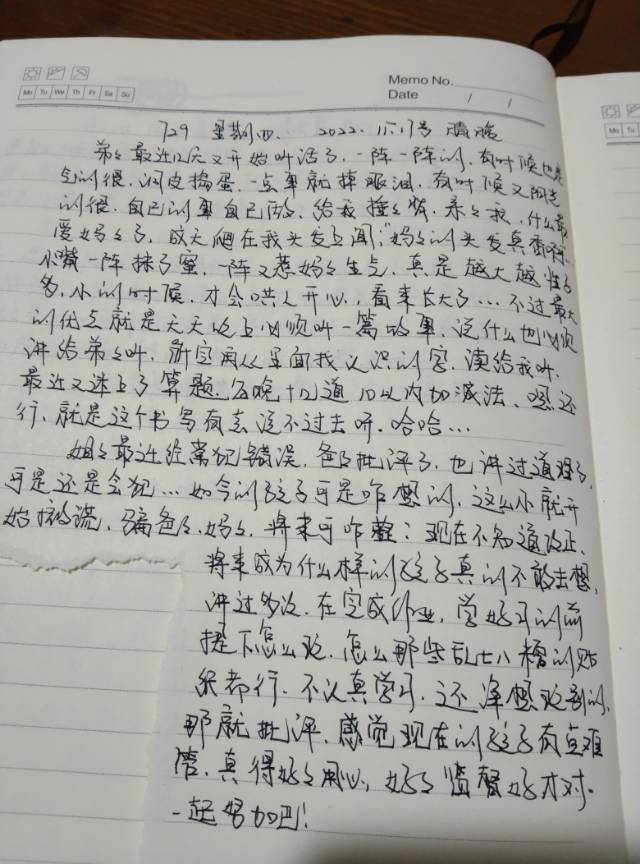 Memo No.
Mo Tu We Th Fr Sa Su
Date / /
729 星期四. 2022. 11.17号 晴暖
弟弟最近几天又开始叫活了，一阵一阵的，有时候也是
气的很，调皮捣蛋，一点事就掉眼泪，有时候又阳光
的很，自己的事自己做，给我捶捶背，亲亲我，什么最
爱妈妈了，成天爬在我头发上闻："妈妈的头发真香啊"
小嘴一阵抹了蜜，一阵又惹妈妈生气，真是越大越性子
多，小的时候，才会哄人开心，看来长大了…不过最大
的优点就是天天晚上必须听一篇故事，说什么也必须
讲给弟弟听，听完再从里面找认识的字，读给我听，
最近又迷上了算题，每晚十几道10以内加减法，嗯还
行，就是这个书写有点说不过去呀，哈哈…
姐姐最近经常犯错误，爸爸批评了，也讲过道理了，
可是还是会犯…如今的孩子可是咋想的，这么小就开
始撒谎，骗爸爸、妈妈，将来可咋整；现在不知道改正，
将来成为什么样的孩子真的不敢去想，
讲过多次，在完成作业，学好习的前
提下怎么玩，怎么那些乱七八糟的贴
纸都行，不认真学习，还净想玩别的，
那就批评，感觉现在的孩子有点难
管，真得好好用心，好好监督好才对。
一起努加吧！
Mo Tu